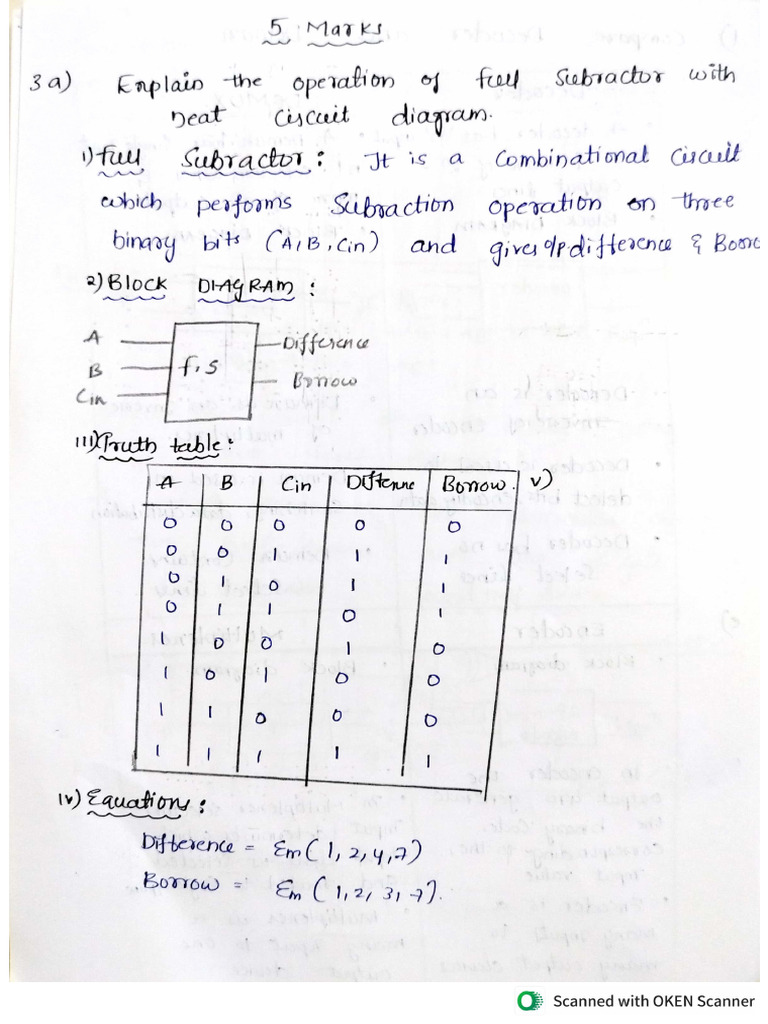 5 Marks
3a) Explain the operation of full Subractor with
neat circuit diagram.
1) full Subractor: It is a Combinational Circuit
which performs Subraction operation on three
binary bits (A,B,Cin) and gives o/p difference & Borro
2) BLOCK DIAGRAM:
A
B
Cin
f.s
Difference
Borrow
III) Truth table:
A B Cin Differne Borrow. V)
0 0 0 0 0
0 0 1 1 1
0 1 0 1 1
0 1 1 0 1
1 0 0 1 0
1 0 1 0 0
1 1 0 0 0
1 1 1 1 1
IV) Equations:
Difference = Σm(1,2,4,7)
Borrow = Σm (1,2,3,7).
Scanned with OKEN Scanner